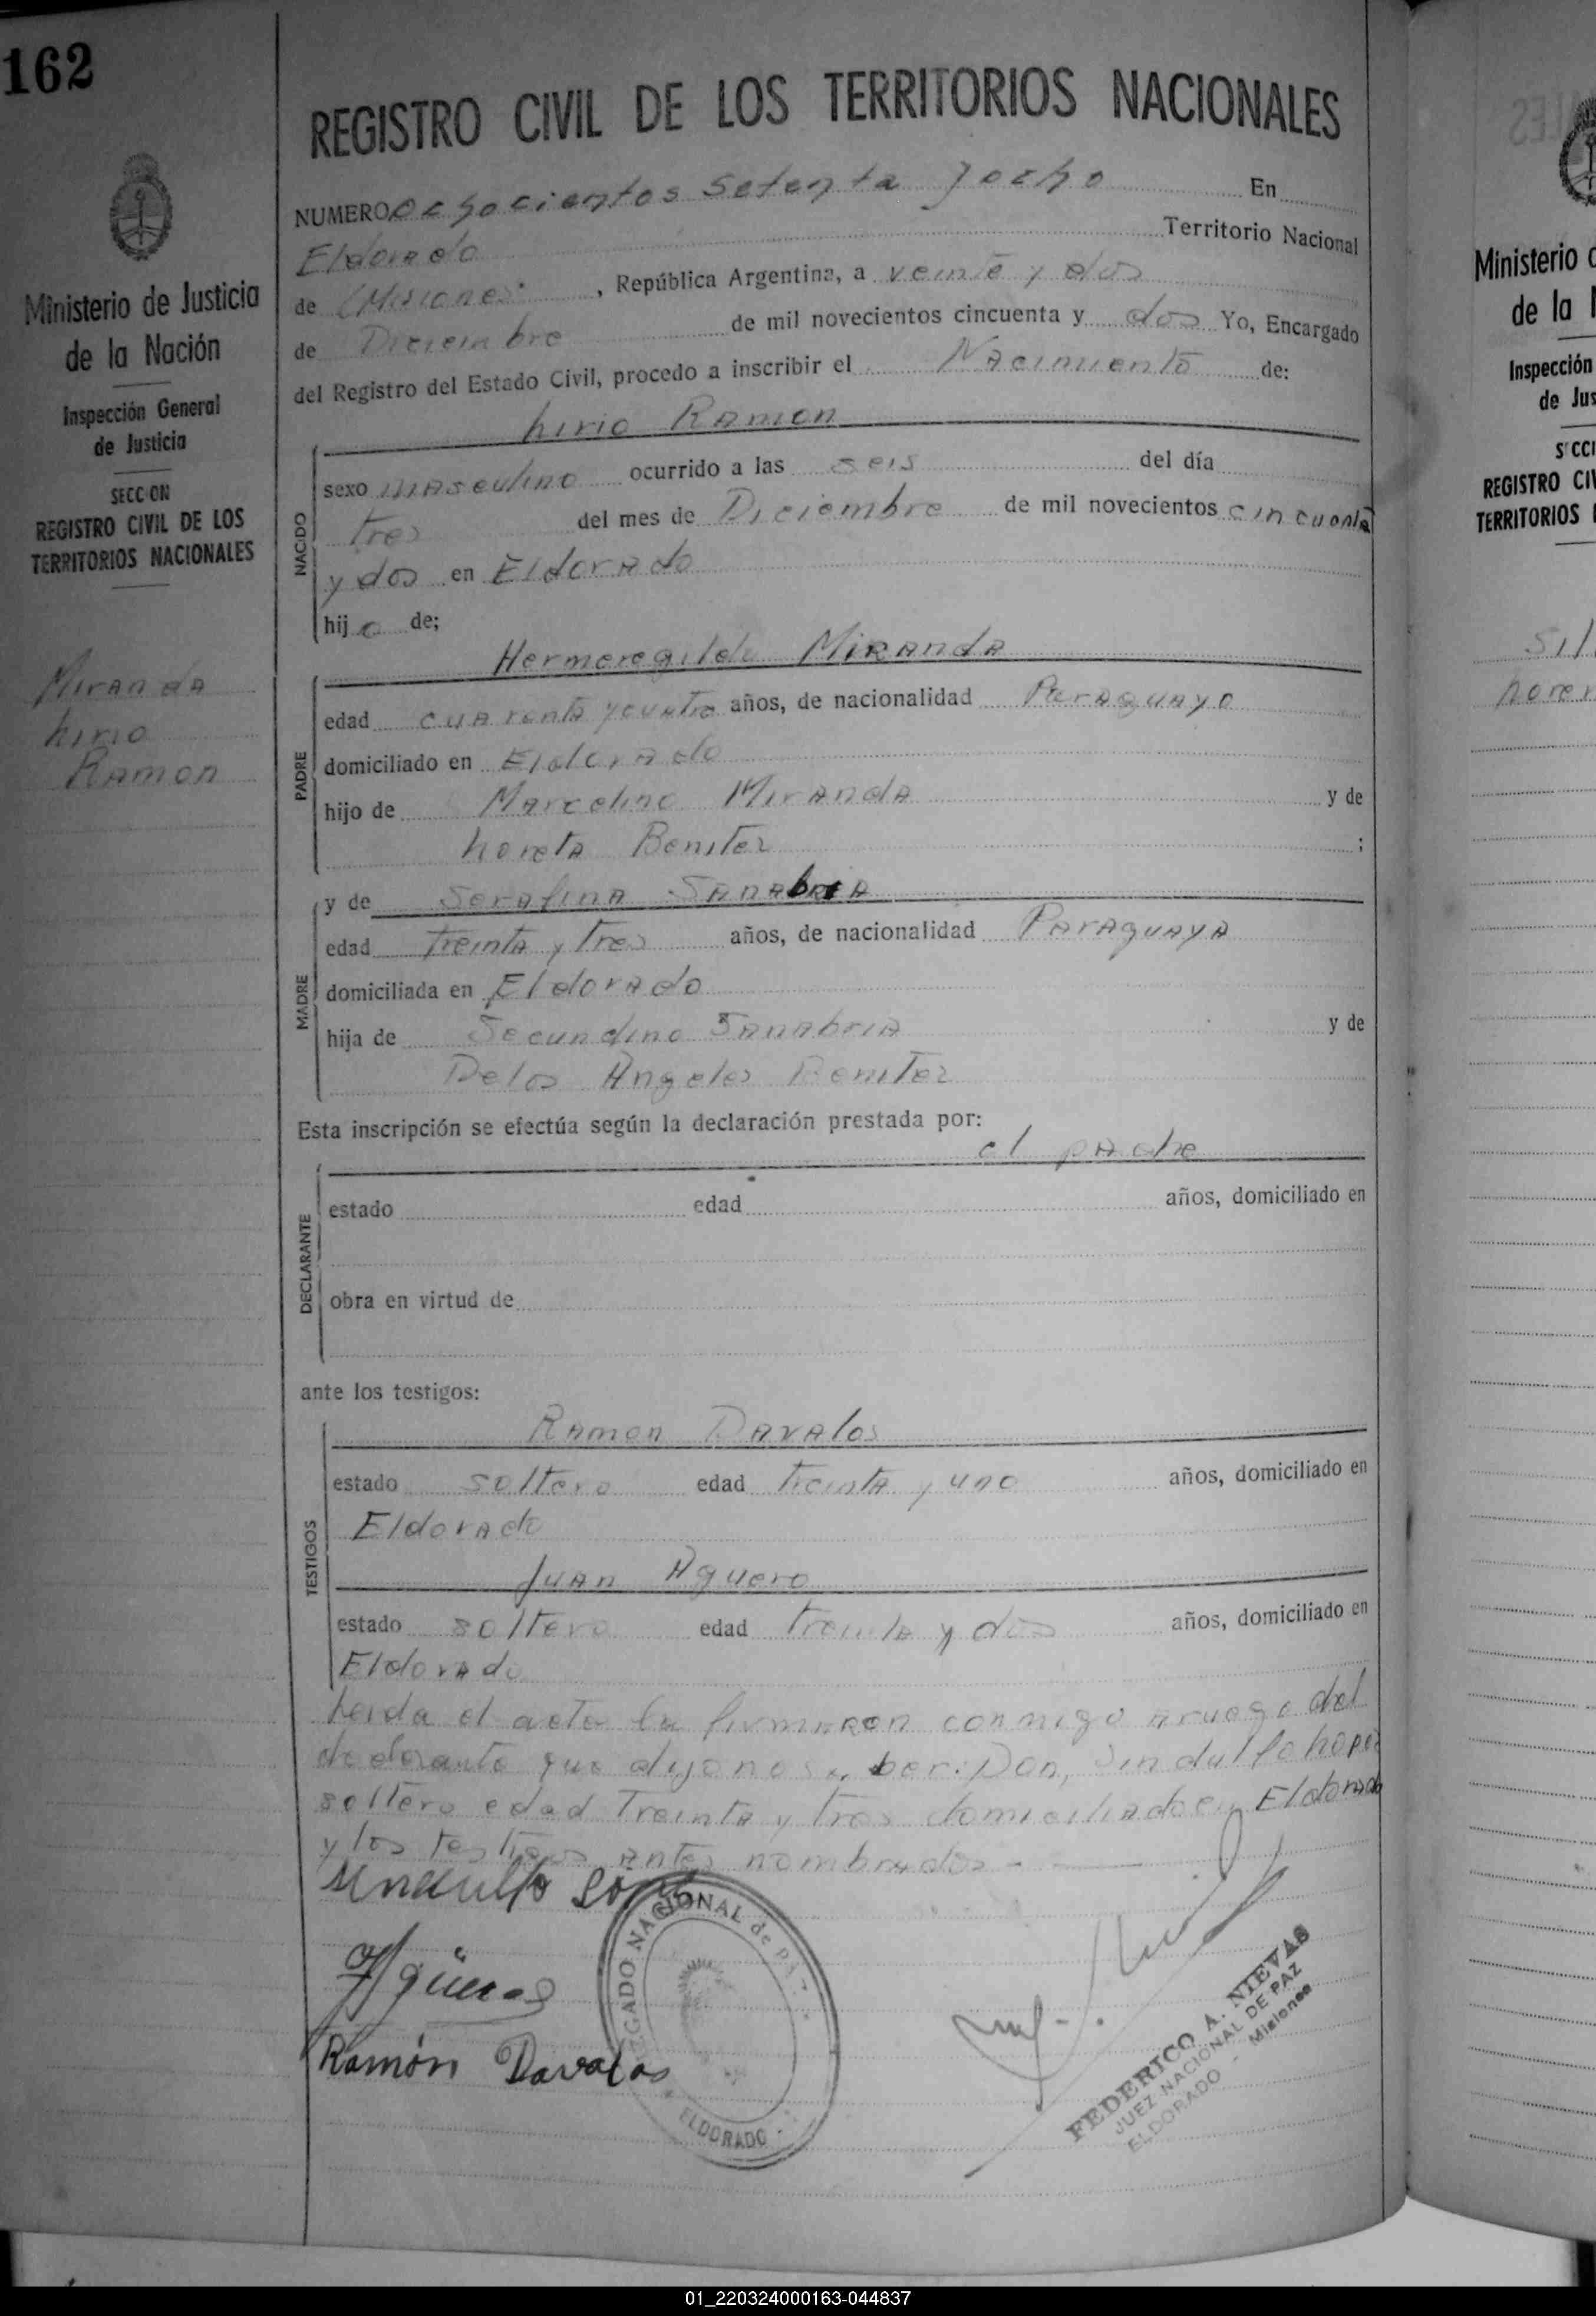 162
REGISTRO CIVIL DE LOS TERRITORIES NACIONALES
NUMERO ochocientos setenta y ocho En
Eldorado Territorio Nacional
de Misiones, República Argentina, a veinte y dos
de Diciembre de mil novecientos cincuenta y dos Yo, Encargado
del Registro del Estado Civil, procedo a inscribir el Nacimiento de:
Lirio Ramon
NACIDO
sexo masculino ocurrido a las seis del día
tres del mes de Diciembre de mil novecientos cincuenta
y dos en Eldorado
hijo de;
Hermeregildo Miranda
PADRE
edad cuarenta y cuatro años, de nacionalidad Paraguayo
domiciliado en Eldorado
hijo de Marcelino Miranda y de
Loreta Benitez ;
y de Serafina Sanabria
MADRE
edad treinta y tres años, de nacionalidad Paraguaya
domiciliada en Eldorado
hija de Secundino Sanabria y de
Delos Angeles Benitez
Esta inscripción se efectúa según la declaración prestada por:
el padre
DECLARANTE
estado edad años, domiciliado en
obra en virtud de
ante los testigos:
Ramon Davalos
TESTIGOS
estado soltero edad treinta y uno años, domiciliado en
Eldorado
Juan Aguero
estado soltero edad treinta y dos años, domiciliado en
Eldorado
Leida el acta la firmaron conmigo a ruego del
declarante que dijo no saber: Don, Sindulfo Lopez
soltero edad treinta y tres domiciliado en Eldorado
y los testigos antes nombrados -
Sindulfo Lopez
Agüero
Ramón Davalos
JUZGADO NACIONAL de PAZ
ELDORADO
FEDERICO A. NIEVAS
JUEZ NACIONAL DE PAZ
ELDORADO - Misiones
Ministerio de Justicia
de la Nación
Inspección General
de Justicia
SECCION
REGISTRO CIVIL DE LOS
TERRITORIOS NACIONALES
Miranda
Lirio
Ramon
Ministerio
de la
Inspección
de Jus
SECCI
REGISTRO CIV
TERRITORIOS
01_220324000163-044837